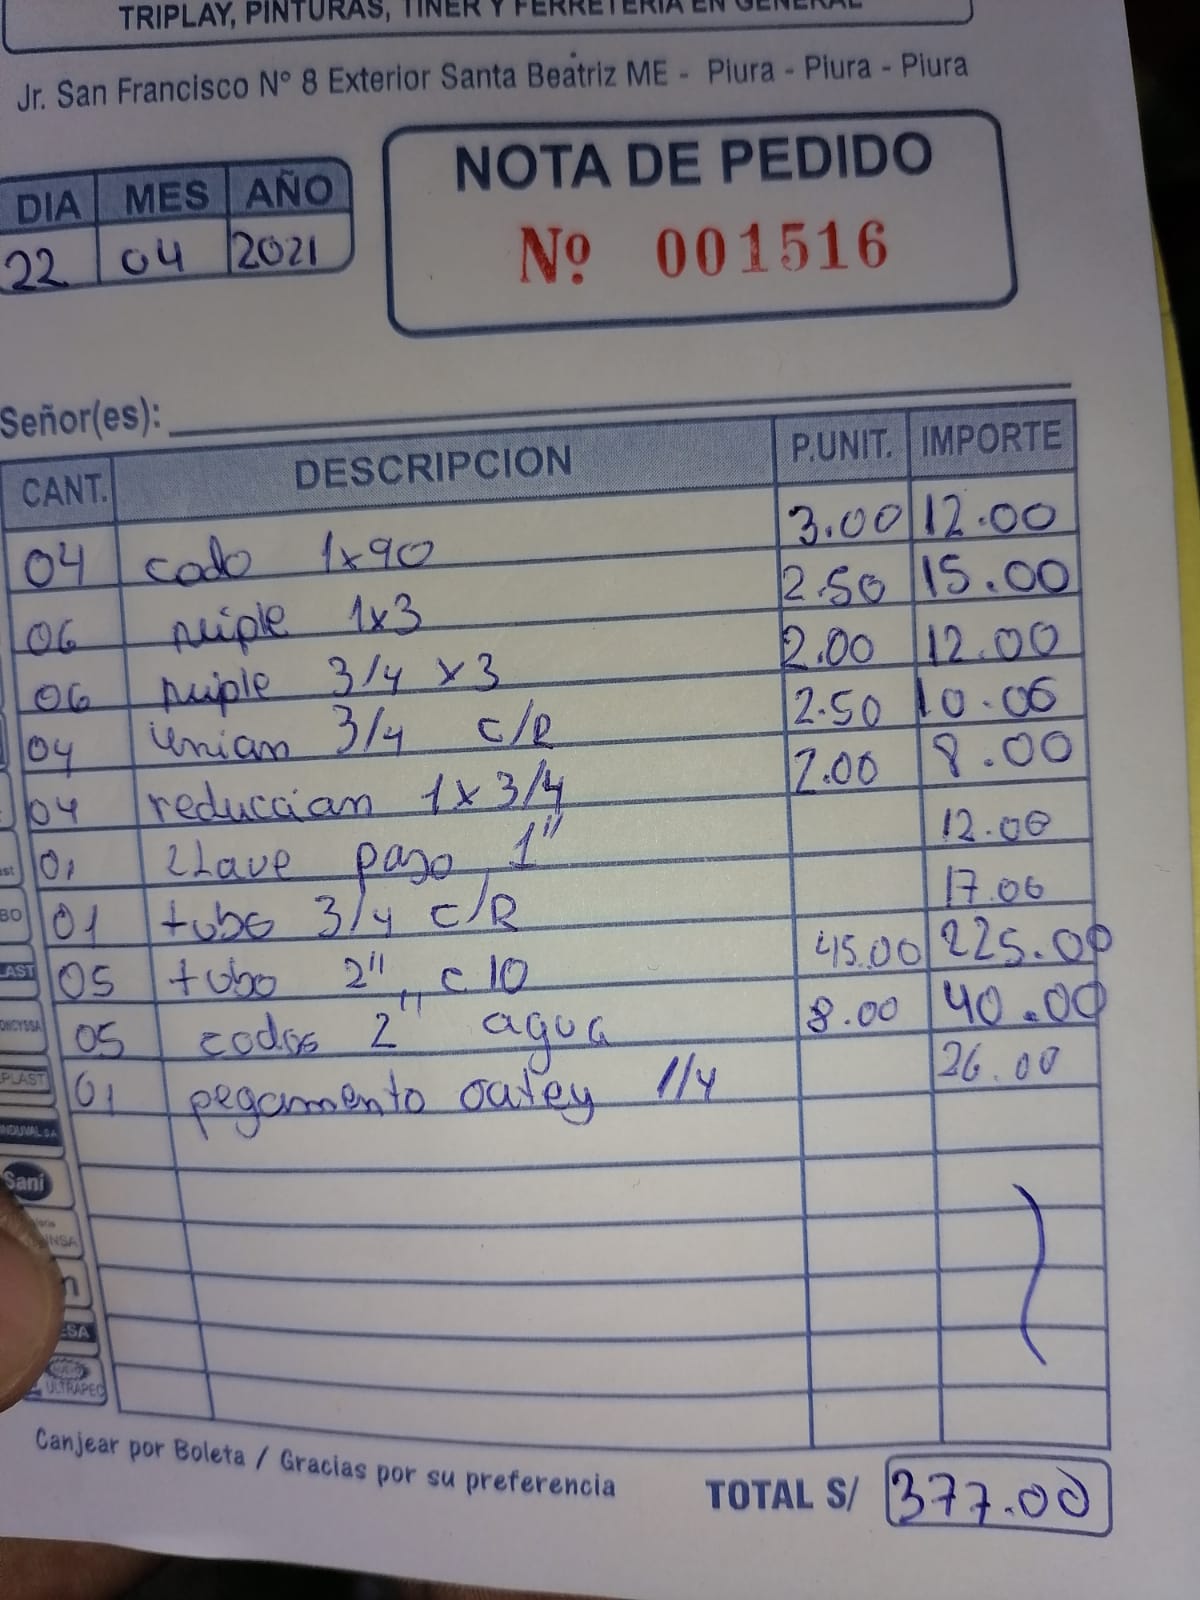 TRIPLAY, PINTURAS, TINER Y FERRETERIA EN GENERAL
Jr. San Francisco N° 8 Exterior Santa Beatriz ME - Piura - Piura - Piura
DIA MES AÑO
22 04 2021
NOTA DE PEDIDO
Nº 001516
Señor(es):
CANT. DESCRIPCION P.UNIT. IMPORTE
04 codo 1x90 3.00 12.00
06 niple 1x3 2.50 15.00
06 niple 3/4 x 3 2.00 12.00
04 union 3/4 c/R 2.50 10.00
04 reduccion 1x3/4 2.00 8.00
01 LLave paso 1" 12.00
01 tubo 3/4 c/R 17.00
05 tubo 2" c 10 45.00 225.00
05 codos 2" agua 8.00 40.00
01 pegamento oatey 1/4 26.00
PLAST
INDUVAL S.A
Sani
ULTRAPEG
Canjear por Boleta / Gracias por su preferencia
TOTAL S/ 377.00